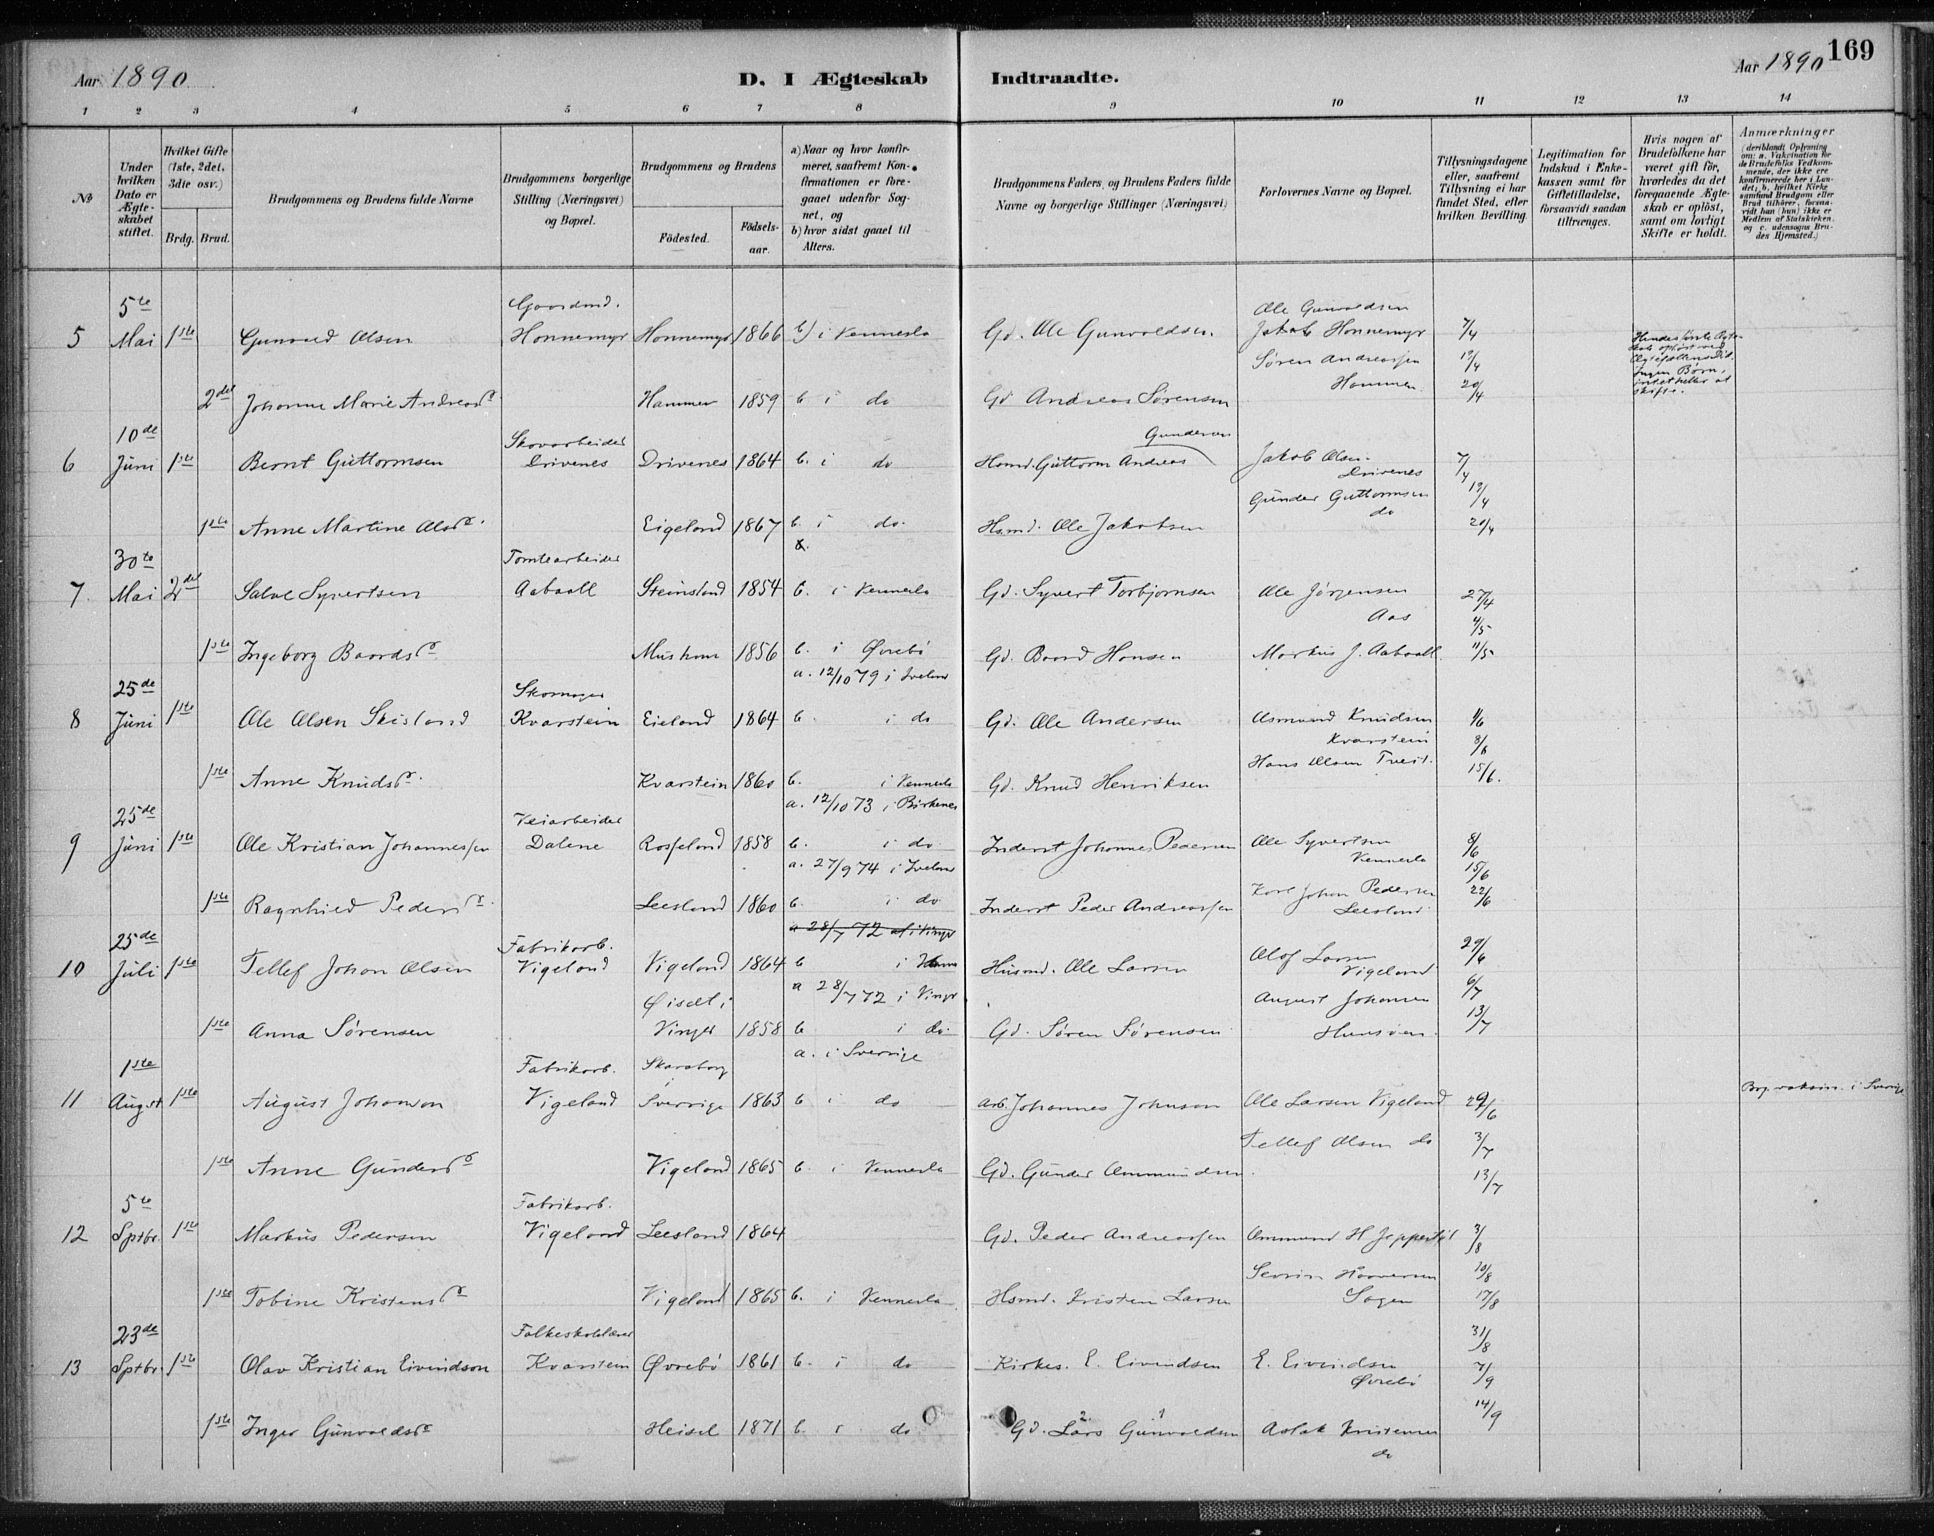 Aar 1890
D. I Ægteskab Indtraadte.
Aar 1890
169
1 2 3 4 5 6 7 8 9 10 11 12 13 14
№
Under hvilken Dato er Ægteskabet stiftet.
Hvilket Gifte (1ste, 2det, 3die osv.)
Brdg. Brud.
Brudgommens og Brudens fulde Navne
Brudgommens borgerlige Stilling (Næringsvei) og Bopæl.
Brudgommens og Brudens
Fødested.
Fødselsaar.
a) Naar og hvor konfirmeret, saafremt Konfirmationen er foregaaet udenfor Sognet, og
b) hvor sidst gaaet til Alters.
Brudgommens Faders, og Brudens Faders fulde Navne og borgerlige Stillinger (Næringsvei)
Forlovernes Navne og Bopæl.
Tillysningsdagene eller, saafremt Tillysning ei har fundet Sted, efter hvilken Bevilling.
Legitimation for Indskud i Enkekassen samt for Giftetilladelse, forsaavidt saadan tiltrænges.
Hvis nogen af Brudefolkene har været gift før, hvorledes da det foregaaende Ægteskab er opløst, samt om lovligt Skifte er holdt.
Anmærkninger (deriblandt Oplysning om: a. Vakcination for de Brudefolks Vedkommende, der ikke ere konfirmerede her i Landet; b. hvilket Kirkesamfund Brudgom eller Brud tilhører, forsaavidt han (hun) ikke er Medlem af Statskirken, og c. udensogns Brudes Hjemsted.)
5te Gaardmd. Ole Gunvaldsen
5 Mai 1ste Gunvald Olsen Honnemyr Honnemyr 1866 b) i Vennesla Gd. Ole Gunvaldsen. Jakob Honnemyr 7/4
Søren Andreassen 13/4
Hammer 20/4
2det Johanne Marie Andreasd. Hammer 1859 b i do Gd Andreas Sørensen
10de Skovarbeider Gundersen
6 Juni 1ste Bernt Guttormsen Drivenes Drivenes 1864 b. i do Hsmd. Guttorm Andreas Jakob Olsen 7/4
Drivenes
Gunder Guttormsen 13/4
do
1ste Anne Martine Olsdr. Eigeland 1867 b. i do. Hsmd. Ole Jakobsen 20/4
30te Tomtearbeider
7. Mai 2det Salve Syvertsen Aabaall Steinsland 1854 b. i Vennesla Gd. Syvert Torbjørnsen Ole Jørgensen 27/4
Aas 4/5
1ste Ingeborg Baardsdr Mushom 1856 b. i Øvrebø Gd. Baard Hansen Markus J. Aabaall 11/5
25de Skomager a. 12/10 79 i Iveland
8 Juni 1ste Ole Olsen Skisland Kvarstein Eieland 1864 b. i do Gd. Ole Andersen Asmund Knudsen 1/6
Kvarstein 8/6
Hans Olsen Tveit. 15/6.
1ste Anne Knudsdr. Kvarstein 1860 b. i Vennesla Gd. Knud Henriksen
25de Veiarbeider a. 12/10 73 i Birkenes
9 Juni 1ste Ole Kristian Johannessen Dalene Rosseland 1858 b. i do. Inderst Johannes Pedersen Ole Syvertsen 8/6
Vennesla
a. 27/9 74 i Iveland 15/6
1ste Ragnhild Pedersdr. Leesland 1860 b. i do Inderst Peder Andreassen Karl Johan Pedersen 22/6
Leesland
25de Fabrikarb. a 28/7 72
10 Juli 1ste Tellef Johan Olsen Vigeland Vigeland 1864 b i Husmd. Ole Larsen Olof Larsen 29/6
Vigeland
Øiset i a 28/7 72 i Vinger August Johansen 6/7
1ste Anna Sørensen Vinger 1858 b i do. Gd. Søren Sørensen Hunsøen. 13/7
1ste Fabrikarb. Skaraborg a. i Sverrige
11 August 1ste August Johanson Vigeland i Sverrige 1863 b i do Arb. Johannes Johnson Ole Larsen Vigeland 29/6 Brg. vaksin. i Sverrige
Tellef Olsen do 3/7
1ste Anne Gundersdr Vigeland 1865 b. i Vennesla Gd. Gunder Ommundsen 13/7
5te Fabrikarb.
12 Sptbr. 1ste Markus Pedersen Vigeland Leesland 1864 Gd. Peder Andreassen Ommund H Jeppestøl 3/8
Sevrin Haaversen 10/8
1ste Tobine Kristensdr Vigeland 1865 b. i Vennesla Hsmd. Kristen Larsen Sagen 17/8
23de Folkeskolelærer 31/8
13 Sptbr. 1ste Olav Kristian Eivindson Kvarstein Øvrebø 1861 b. i do Kirkes. E. Eivindsen E. Eivindsen 7/9
Øvrebø
1ste Inger Gunvaldsdr Heisel 1871 b. i do. Gd. Lars Gunvaldsen Aslak Kristensen 14/9
do